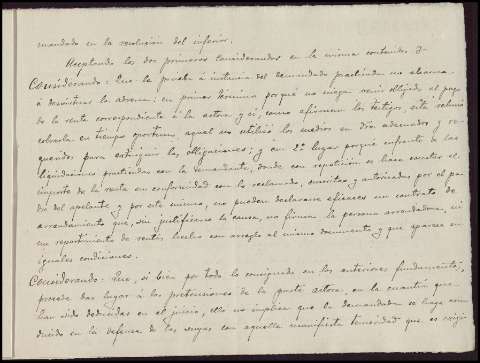 mandado en la resolución del inferior.
Aceptando los dos primeros Considerandos en la misma contenidos y
Considerando: Que la prueba á instancia del demandado practicada no alcanza
á desvirtuar la adversa: en primer término porque no niega venir obligado al pago
de la renta correspondiente á la actora y si, como afirman los testigos, esta rehusó
cobrarla en tiempo oportuno, aquel no utilizó los medios en dro. adecuados y re-
queridos para extinguir las obligaciones; y en 2º lugar porque enfrente de las
liquidaciones practicadas con la demandante, donde con repetición se hace constar el
importe de la renta en conformidad con lo reclamado, suscritas y autorizadas por el pa-
dre del apelante y por este mismo, no pueden declararse eficaces un contrato de
arrendamiento que, sin justificarse la causa, no firma la persona arrendadora, ni
un repartimiento de rentas hecho con arreglo al mismo documento y que aparece en
iguales condiciones.
Considerando: Que, si bien por todo lo consignado en los anteriores fundamentos,
procede dar lugar á las pretensiones de la parte actora, en la cuantía que
han sido deducidas en el juicio, ello no implica que la demandada se haya con-
ducido en la defensa de las suyas con aquella manifiesta temeridad que es exigi-